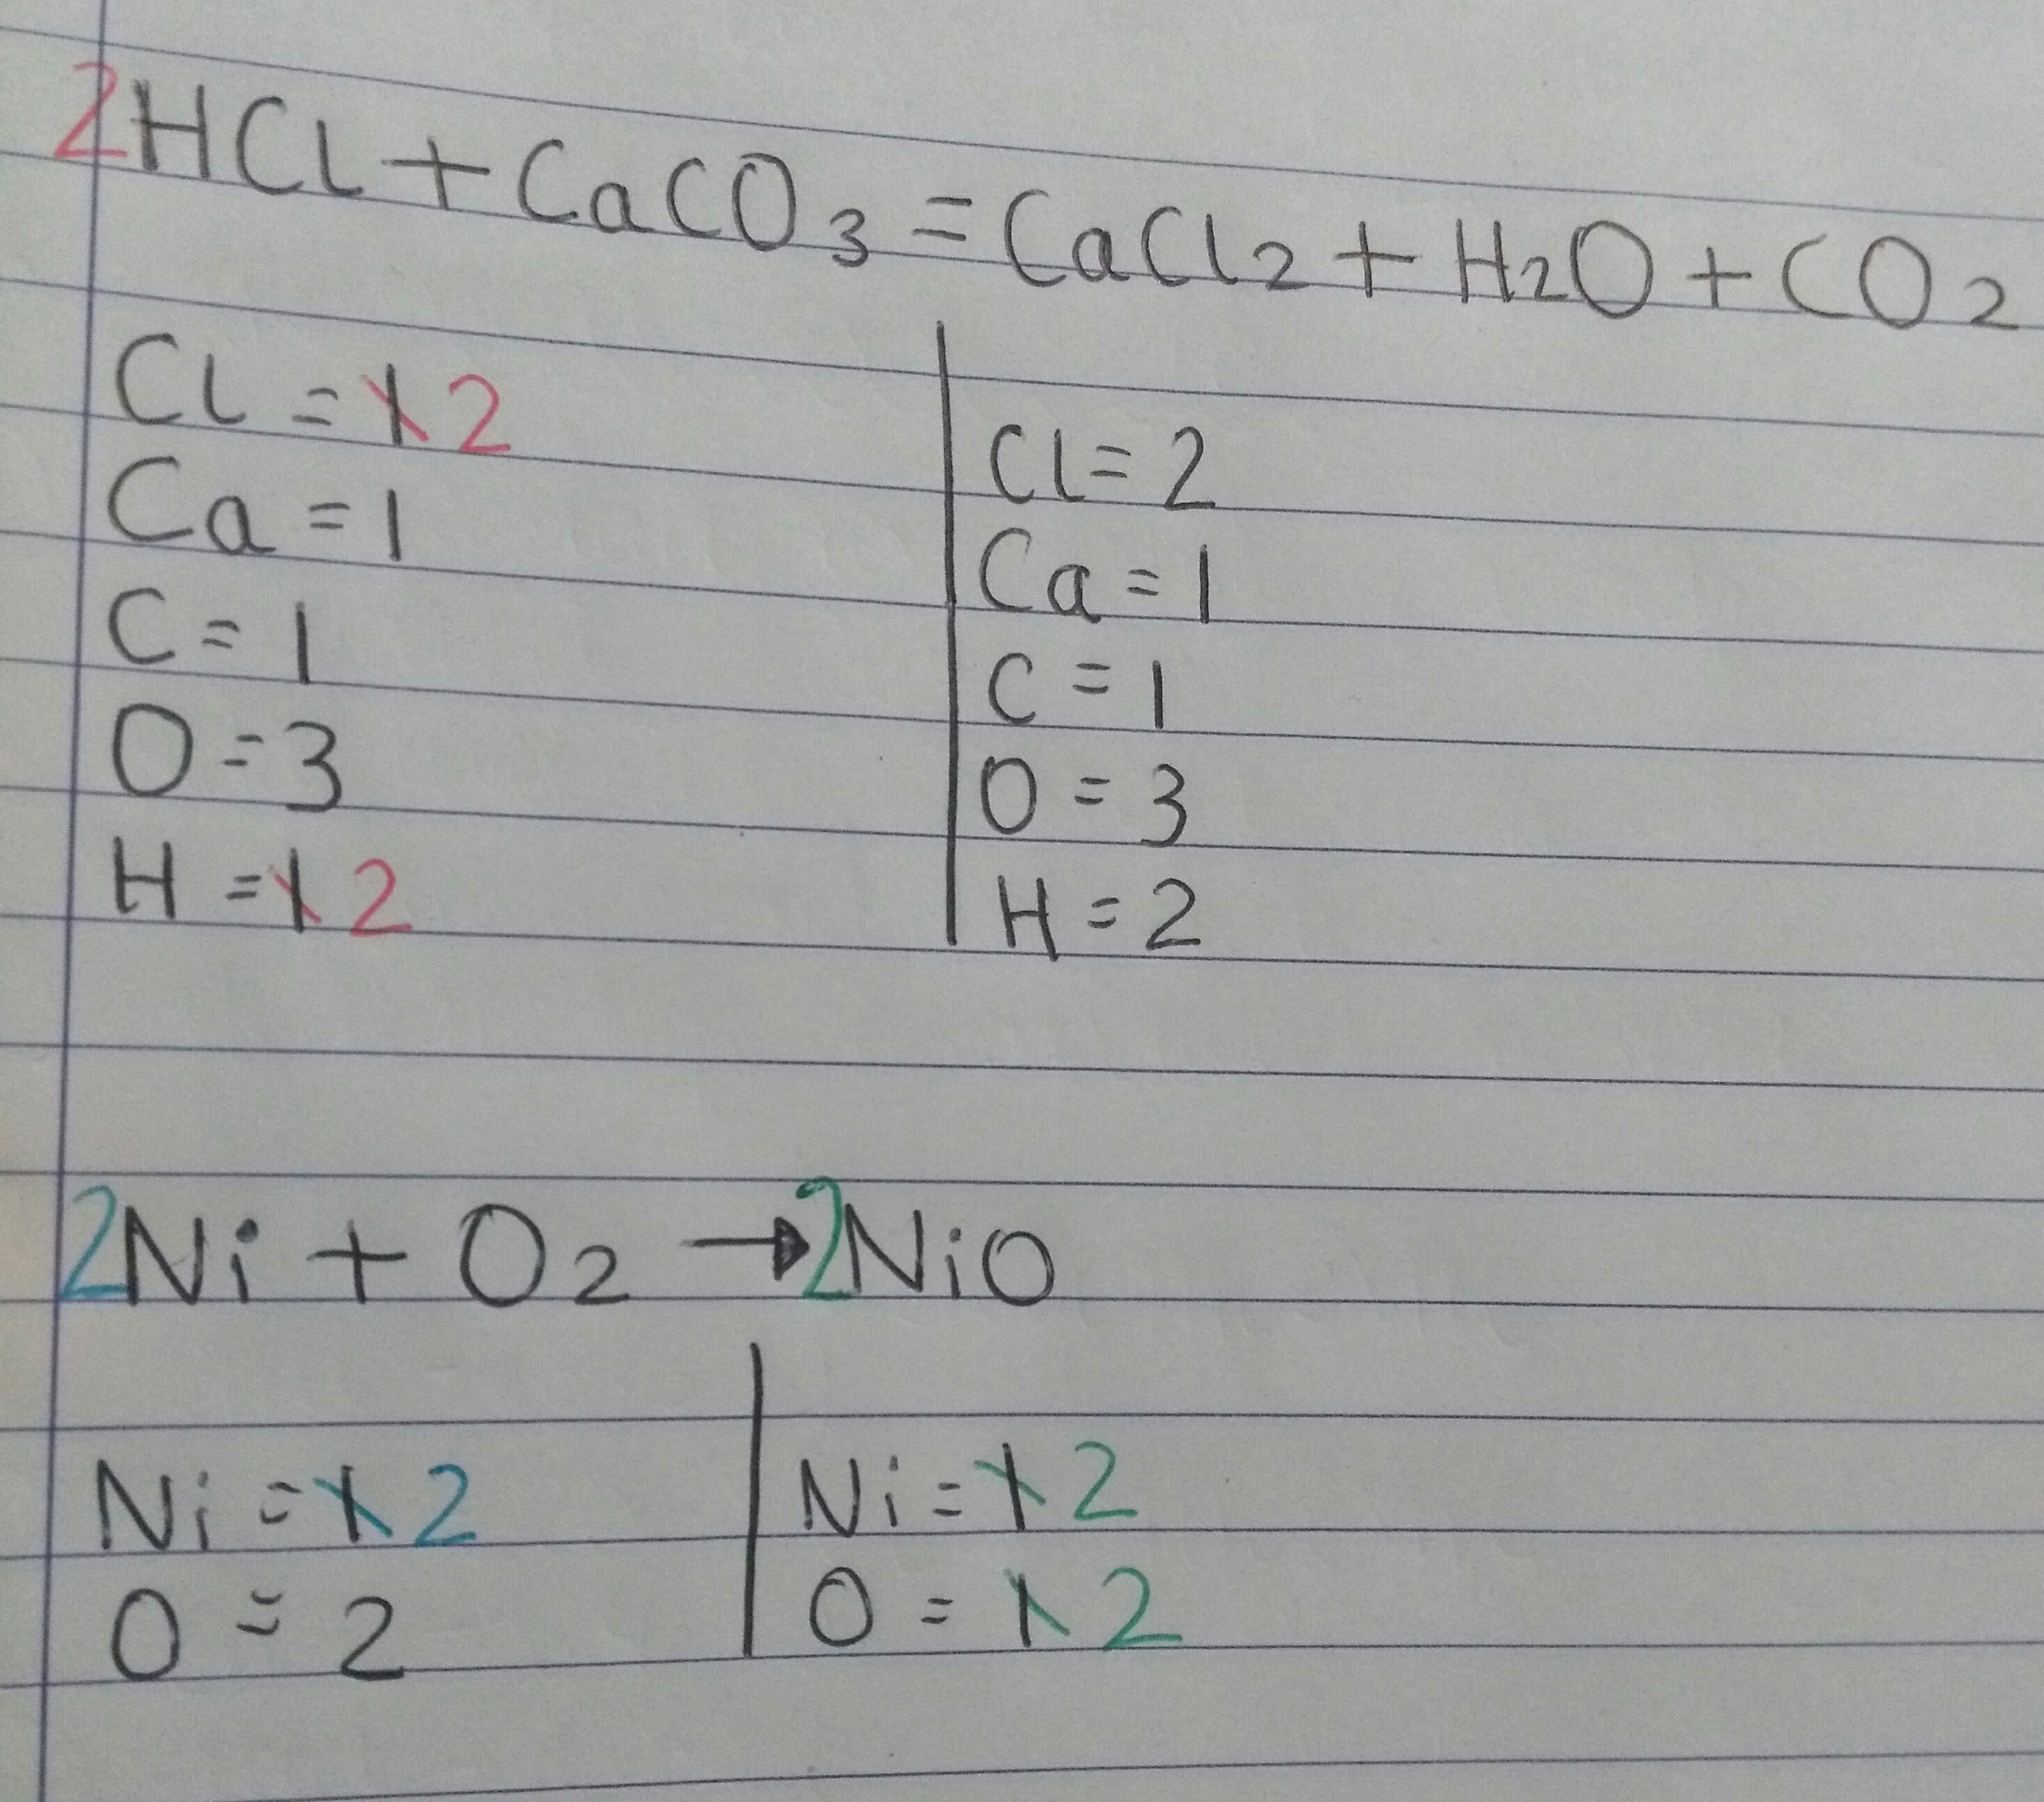 2HCl + CaCO3 = CaCl2 + H2O + CO2
Cl = 1 2
Ca = 1
C = 1
O = 3
H = 1 2
Cl = 2
Ca = 1
C = 1
O = 3
H = 2
2Ni + O2 → 2NiO
Ni = 1 2
O = 2
Ni = 1 2
O = 1 2